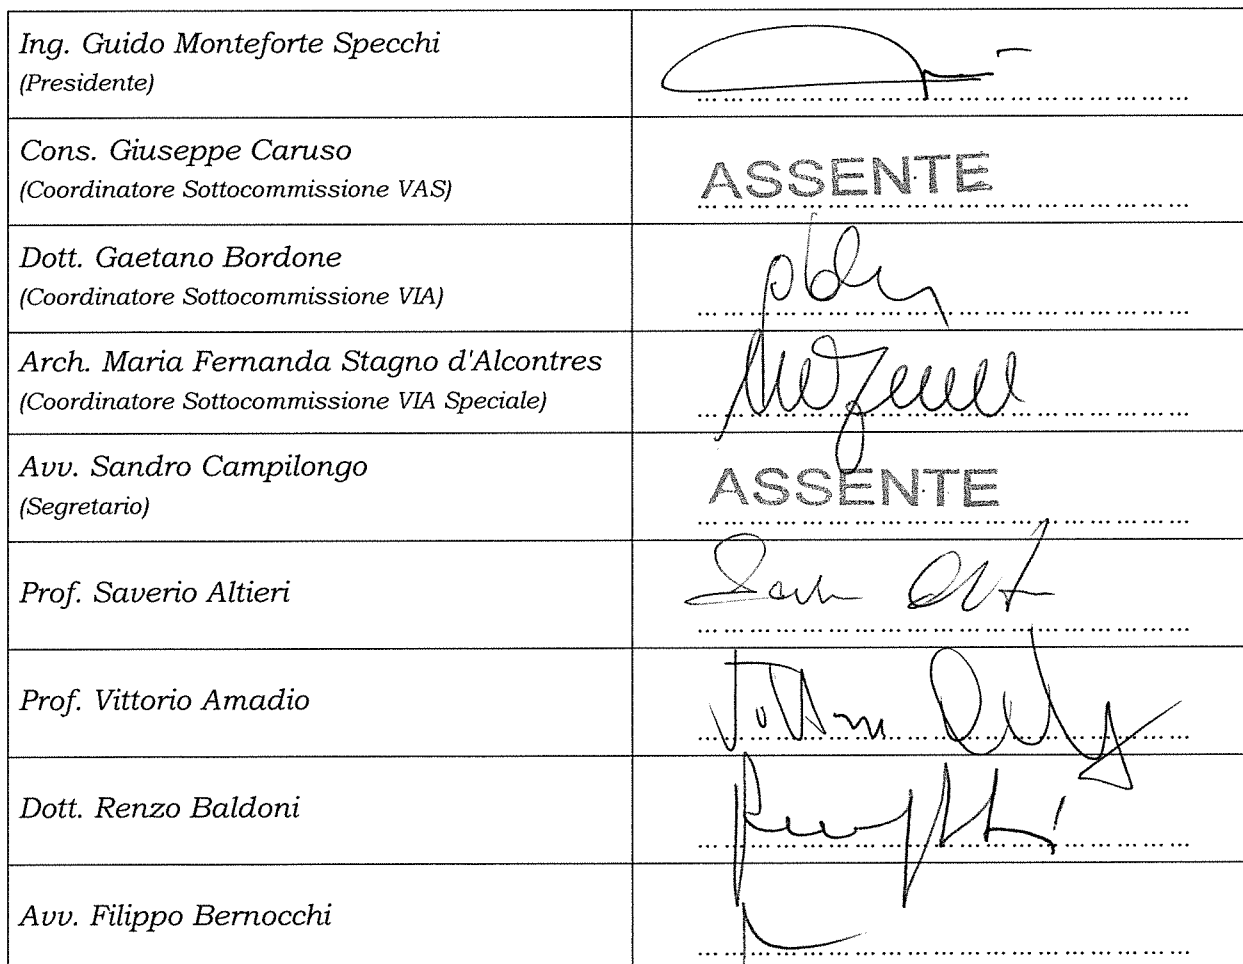 Ing. Guido Monteforte Specchi
(Presidente)
Cons. Giuseppe Caruso
(Coordinatore Sottocommissione VAS)
ASSENTE
Dott. Gaetano Bordone
(Coordinatore Sottocommissione VIA)
Arch. Maria Fernanda Stagno d'Alcontres
(Coordinatore Sottocommissione VIA Speciale)
Avv. Sandro Campilongo
(Segretario)
ASSENTE
Prof. Saverio Altieri
Prof. Vittorio Amadio
Dott. Renzo Baldoni
Avv. Filippo Bernocchi